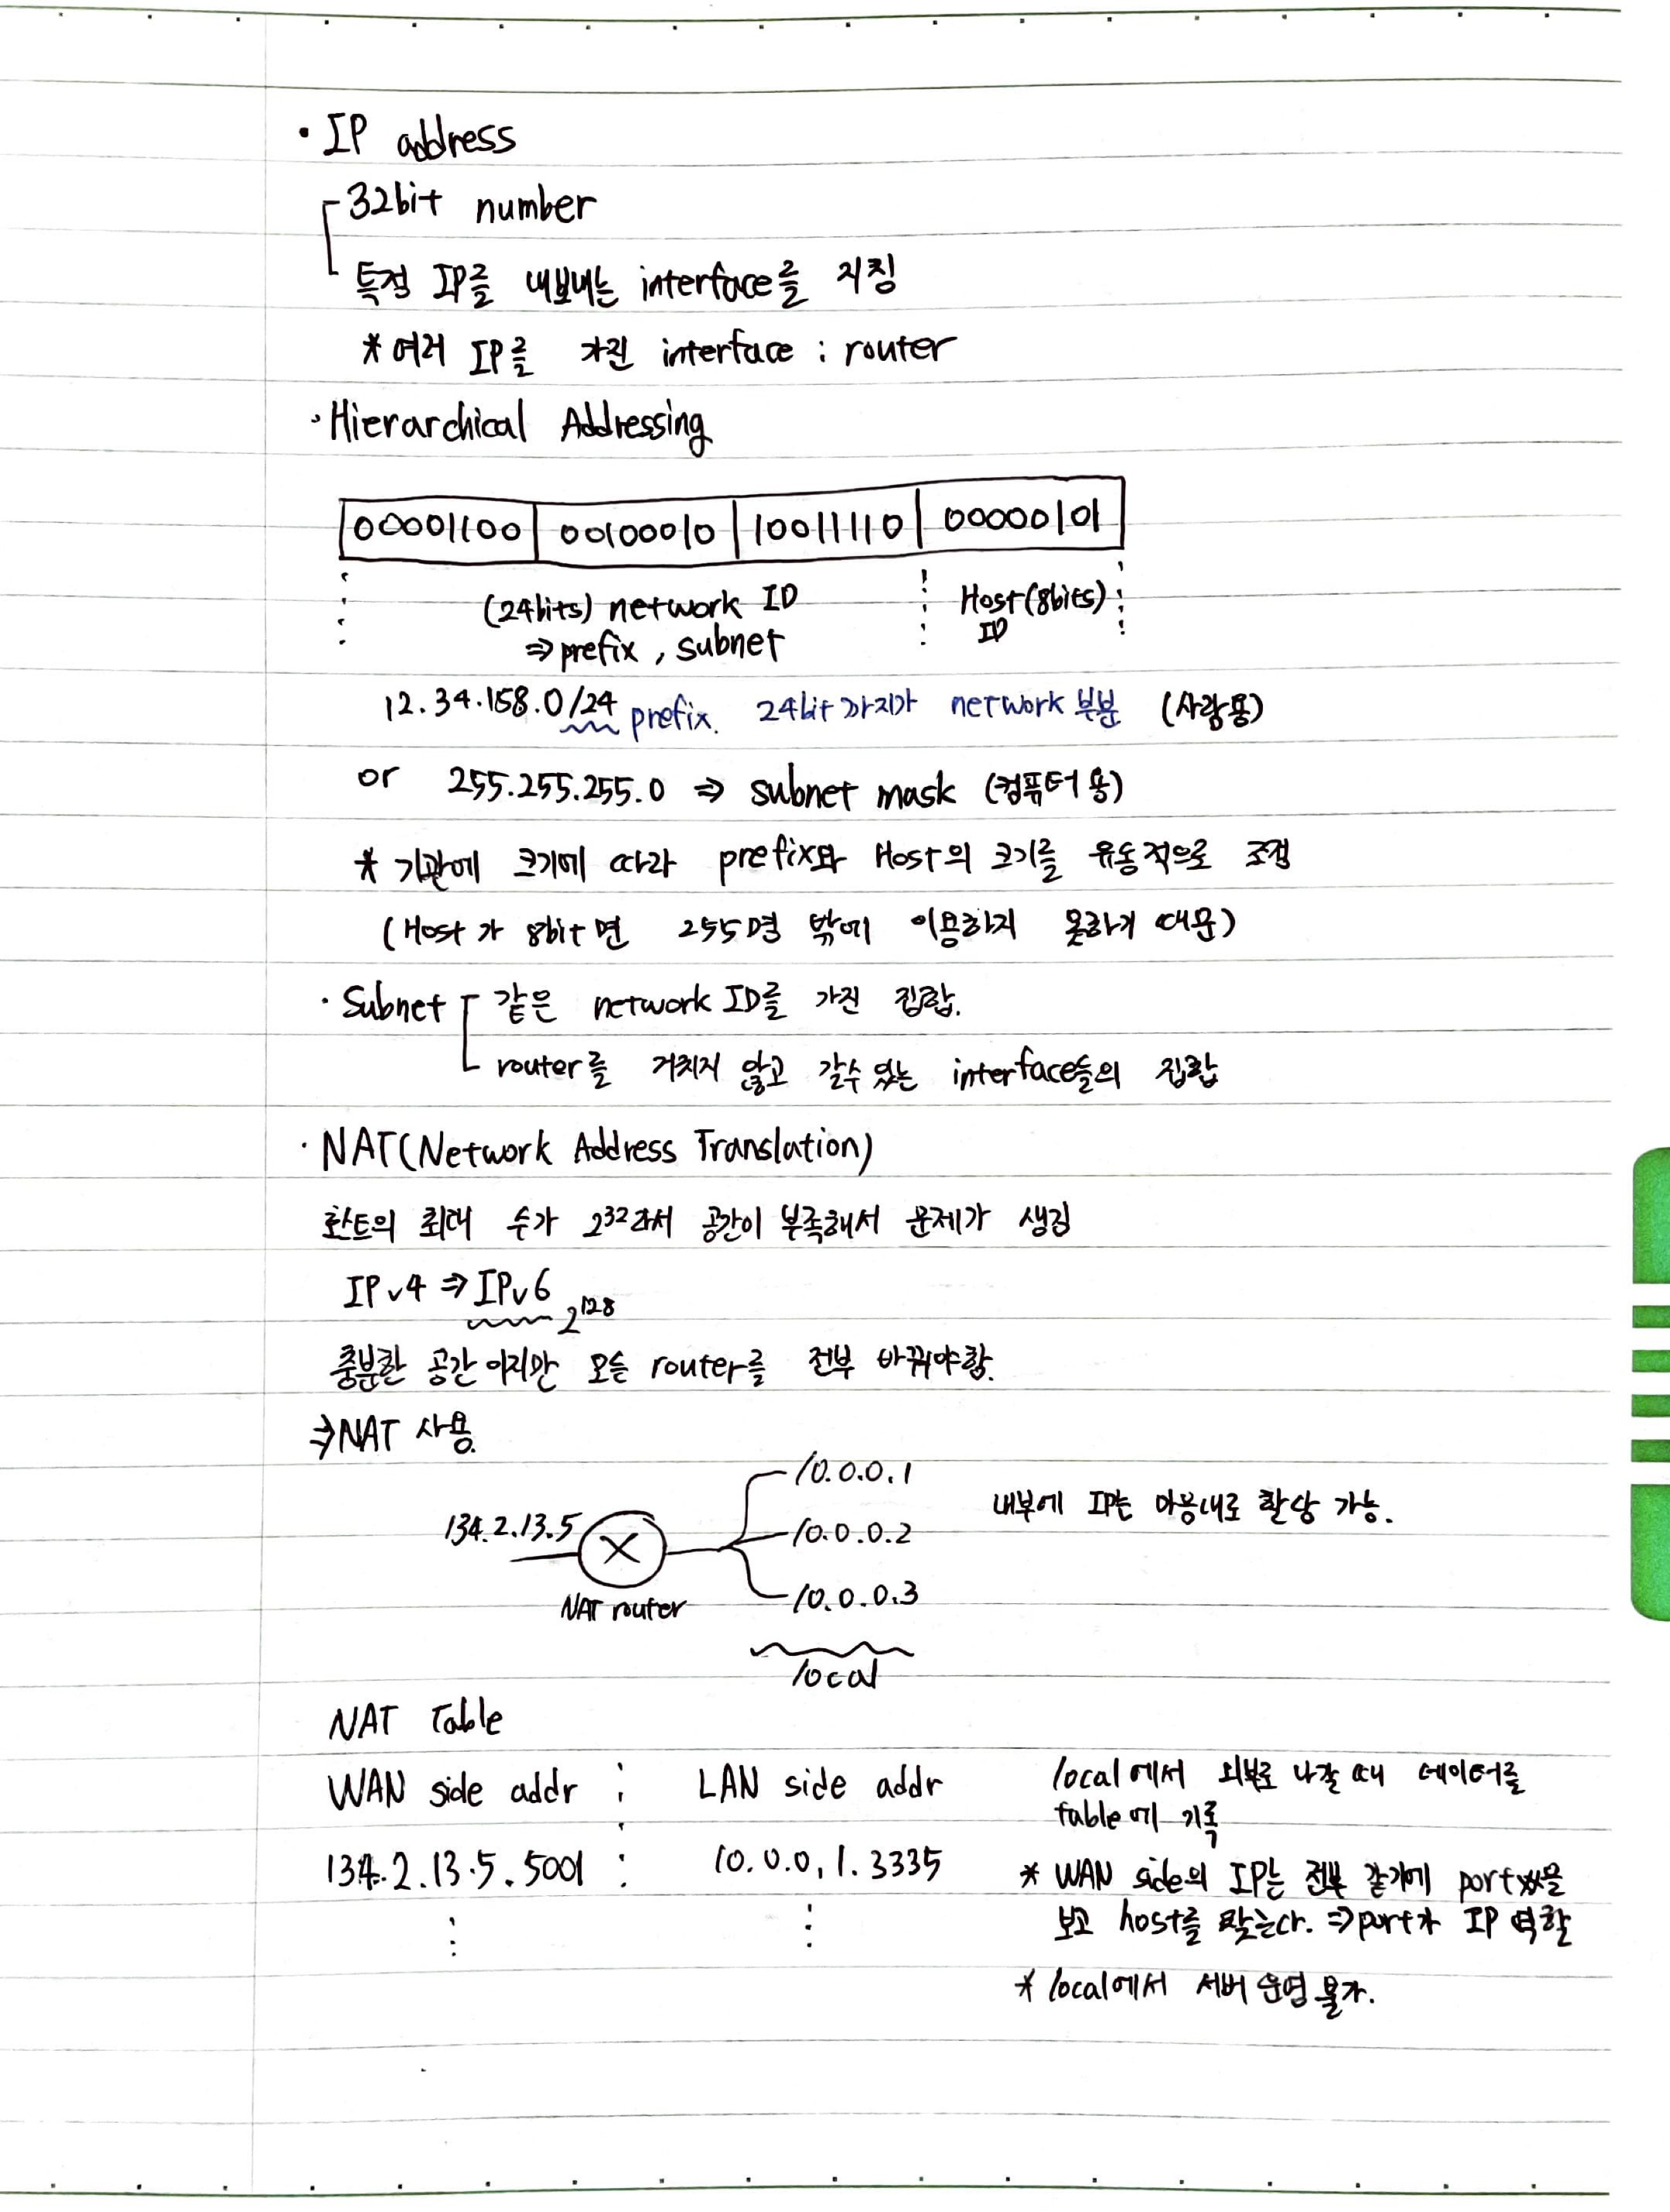 · IP address
32bit number
특정 IP를 내보내는 interface를 지칭
* 여러 IP를 가진 interface : router
· Hierarchical Addressing
00001100 00100010 10011110 00000101
(24bits) network ID Host(8bits)
ID
⇒ prefix, subnet
12.34.158.0/24 prefix. 24bit까지가 network 부분 (사람용)
or 255.255.255.0 ⇒ subnet mask (컴퓨터용)
* 기관에 크기에 따라 prefix와 Host의 크기를 유동적으로 조절
(Host가 8bit면 255명 밖에 이용하지 못하기 때문)
· Subnet 같은 network ID를 가진 집합.
router를 거치지 않고 갈수 있는 interface들의 집합
· NAT(Network Address Translation)
호스트의 최대 수가 2³²라서 공간이 부족해서 문제가 생김
IPv4 ⇒ IPv6 2¹²⁸
충분한 공간이지만 모든 router를 전부 바꿔야함.
⇒ NAT 사용.
10.0.0.1
내부에 IP는 마음대로 할당 가능.
134.2.13.5 10.0.0.2
NAT router 10.0.0.3
local
NAT Table
WAN side addr : LAN side addr
134.2.13.5.5001 : 10.0.0.1.3335
⋮ ⋮
local에서 외부로 나갈 때 데이터를
table에 기록
* WAN side의 IP는 전부 같기에 port#을
보고 host를 찾는다. ⇒ port가 IP 역할
* local에서 서버 운영 불가.